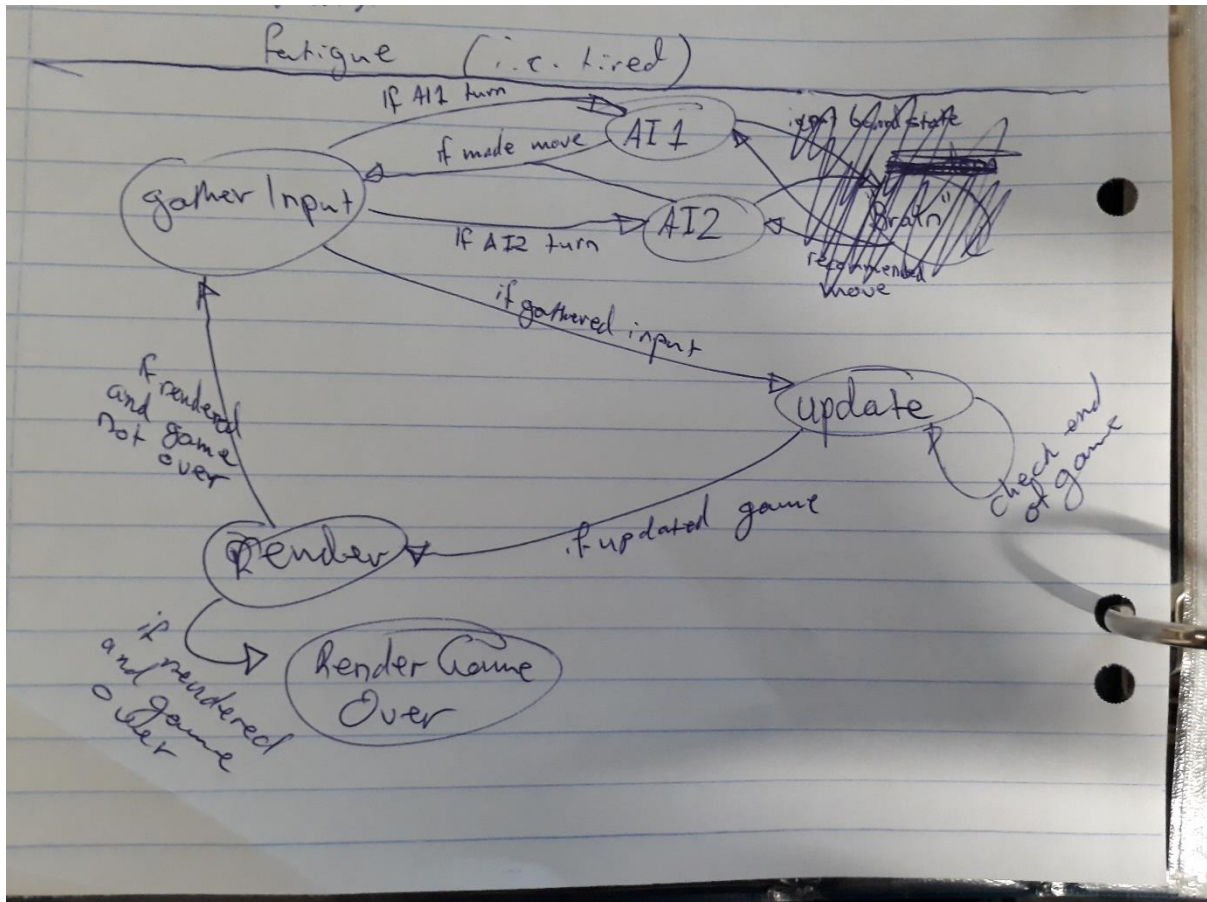 fatigue (i.e. tired)
if AI1 turn
AI1
input board state
if made move
gather Input
"Brain"
AI2
if AI2 turn
recommended
move
if gathered input
update
check end
of game
if rendered
and game
not over
if updated game
Render
if rendered
and game
over
Render Game
Over